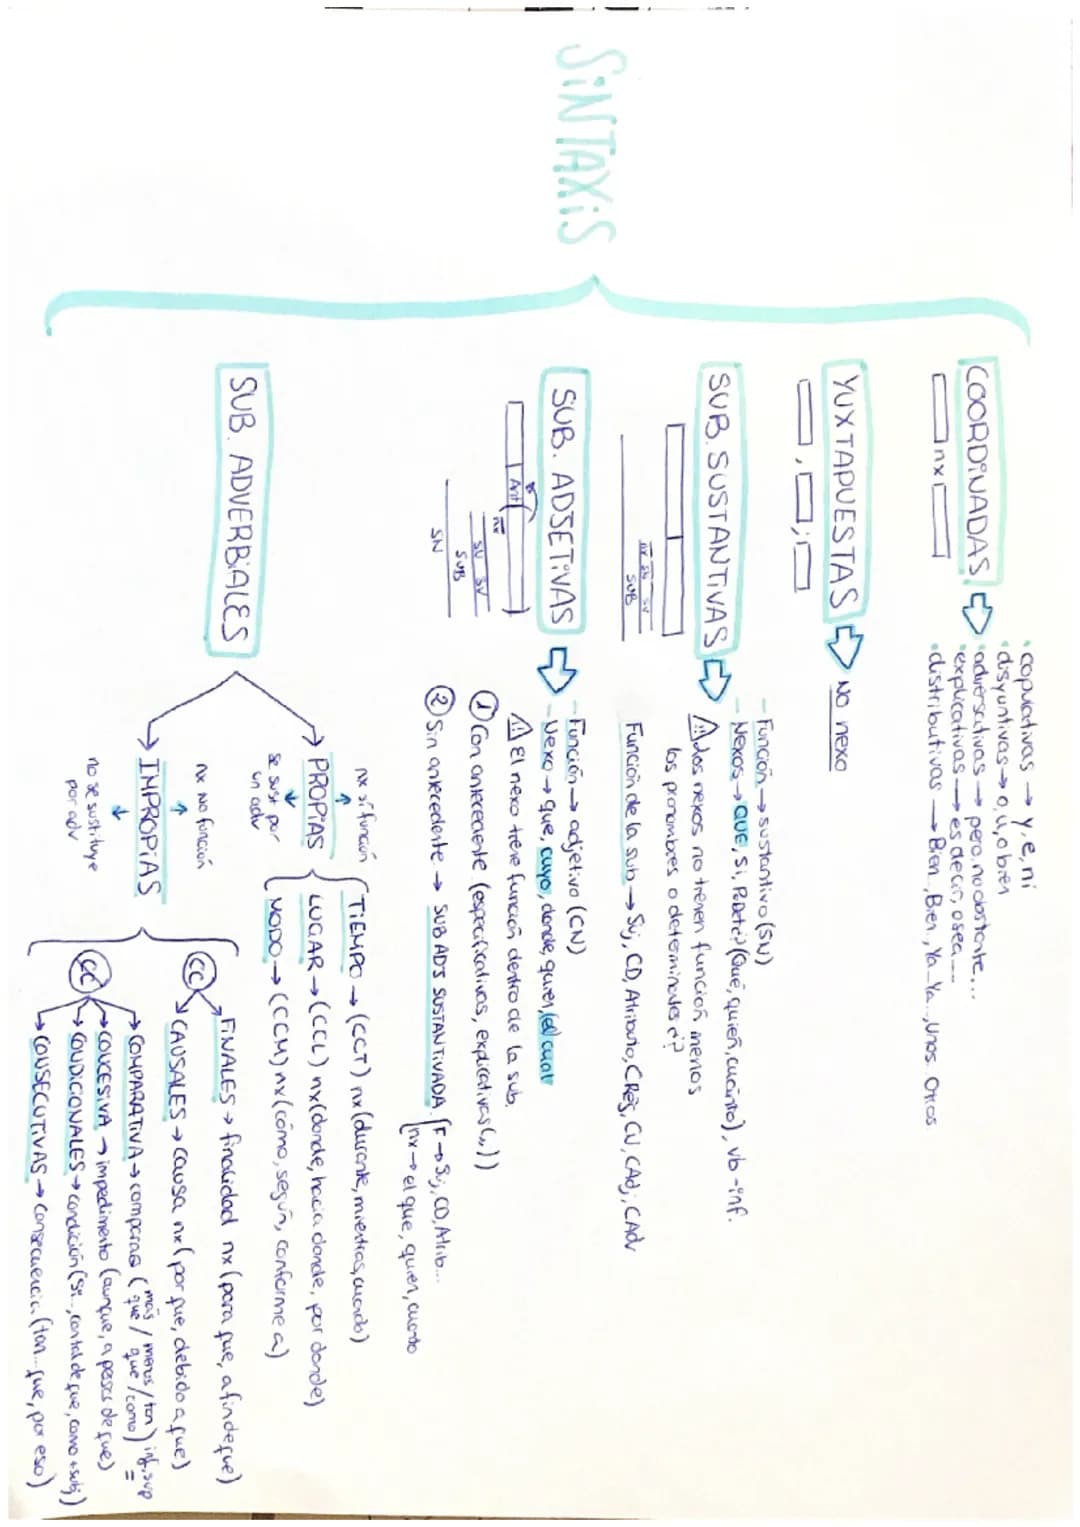 SINTAXIS
COORDINADAS
nx
• copulativas → y, e, ni
• disyuntivas → o, u, o bien
• adversativas → pero, no obstante,...
• explicativas → es decir, o sea...
• distributivas → Bien..,Bien.., Ya...Ya...,Unos..Otros
YUXTAPUESTAS
No nexo
, ;
SUB. SUSTANTIVAS
- Función → sustantivo (SN)
- Nexos → QUE, Si, (Qué, quién, cuánto), vb - inf.
⚠ Los nexos no tienen función, menos
los pronombres o determinantes ¿?
Función de la sub → Suj, CD, Atributo, CRég, CN, CAdj, CAdv
nx SN SV
SUB
SUB. ADJETIVAS
- Función → adjetivo (CN)
- Nexo → que, cuyo, donde, quien, (el) cual
⚠ El nexo tiene función dentro de la sub.
① Con antecedente (especificativas, explicativas (,,))
② Sin antecedente → SUB ADJ SUSTANTIVADA
F → Suj, CD, Atrib...
nx → el que, quien, cuanto
Ant
nx
SN SV
SUB
SN
SUB. ADVERBIALES
nx sí función
PROPIAS
se sust por
un adv
TIEMPO → (CCT) nx (durante, mientras, cuando)
LUGAR → (CCL) nx (donde, hacia donde, por donde)
MODO → (CCM) nx (cómo, según, conforme a)
nx NO función
IMPROPIAS
no se sustituye
por adv
CC
FINALES → finalidad nx (para que, a fin de que)
CAUSALES → causa nx (porque, debido a que)
CC
COMPARATIVA → comparas (más / menos / tan) inf, sup
que / que / como =
CONCESIVA → impedimento (aunque, a pesar de que)
CONDICIONALES → condición (Si.., con tal de que, como + subj)
CONSECUTIVAS → consecuencia (tan...que, por eso)